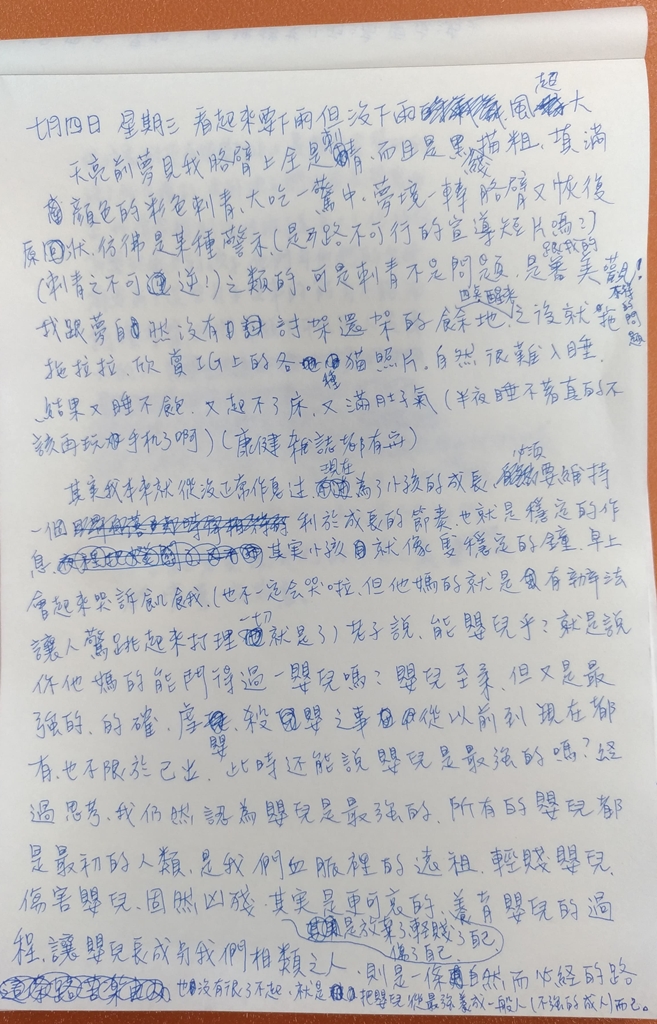 七月四日 星期三 看起來要下雨但沒下雨 風超大
天亮前夢見我胳臂上全是刺青、而且是黑線描粗、填滿
顏色的彩色刺青、大吃一驚中、夢境一轉胳臂又恢復
原狀、仿佛是某種警示、(是歹路不可行的宣導短片嗎?)
(刺青之不可逆!)之類的。可是刺青不是問題、是審美觀!
跟我的 不行的問題
我跟夢自然沒有討架還架的餘地、醒來之後就拖
拖拉拉、欣賞IG上的各種貓照片。自然很難入睡、
結果又睡不飽、又起不了床、又滿肚子氣(半夜睡不著真的不
該再玩手机了啊)(康健雜誌都有寫)
其實我本來就從沒正常作息過、現在為了小孩的成長、必須要維持
一個利於成長的節奏、也就是穩定的作
息、其實小孩就像隻穩定的鐘、早上
會起來哭訴飢餓、(也不一定会哭啦、但他媽的就是有辦法
讓人驚跳起來打理一切就是了)老子說、能嬰兒乎?就是說
你他媽的能鬥得過一嬰兒嗎?嬰兒至柔、但又是最
強的、的確、虐嬰、殺嬰之事從以前到現在都
有、也不限於己出、此時还能說嬰兒是最強的嗎?經
過思考、我仍然認為嬰兒是最強的、所有的嬰兒都
是最初的人類、是我們血脈裡的遠祖、輕賤嬰兒、
傷害嬰兒、固然凶殘、其實是更可哀的、養育嬰兒的過
是放棄了輕賤了自己 傷了自己、
程、讓嬰兒長成與我們相類之人、則是一條自然而必經的路
也沒有很了不起、就是把嬰兒從最強養成一般人(不強的成人)而已。